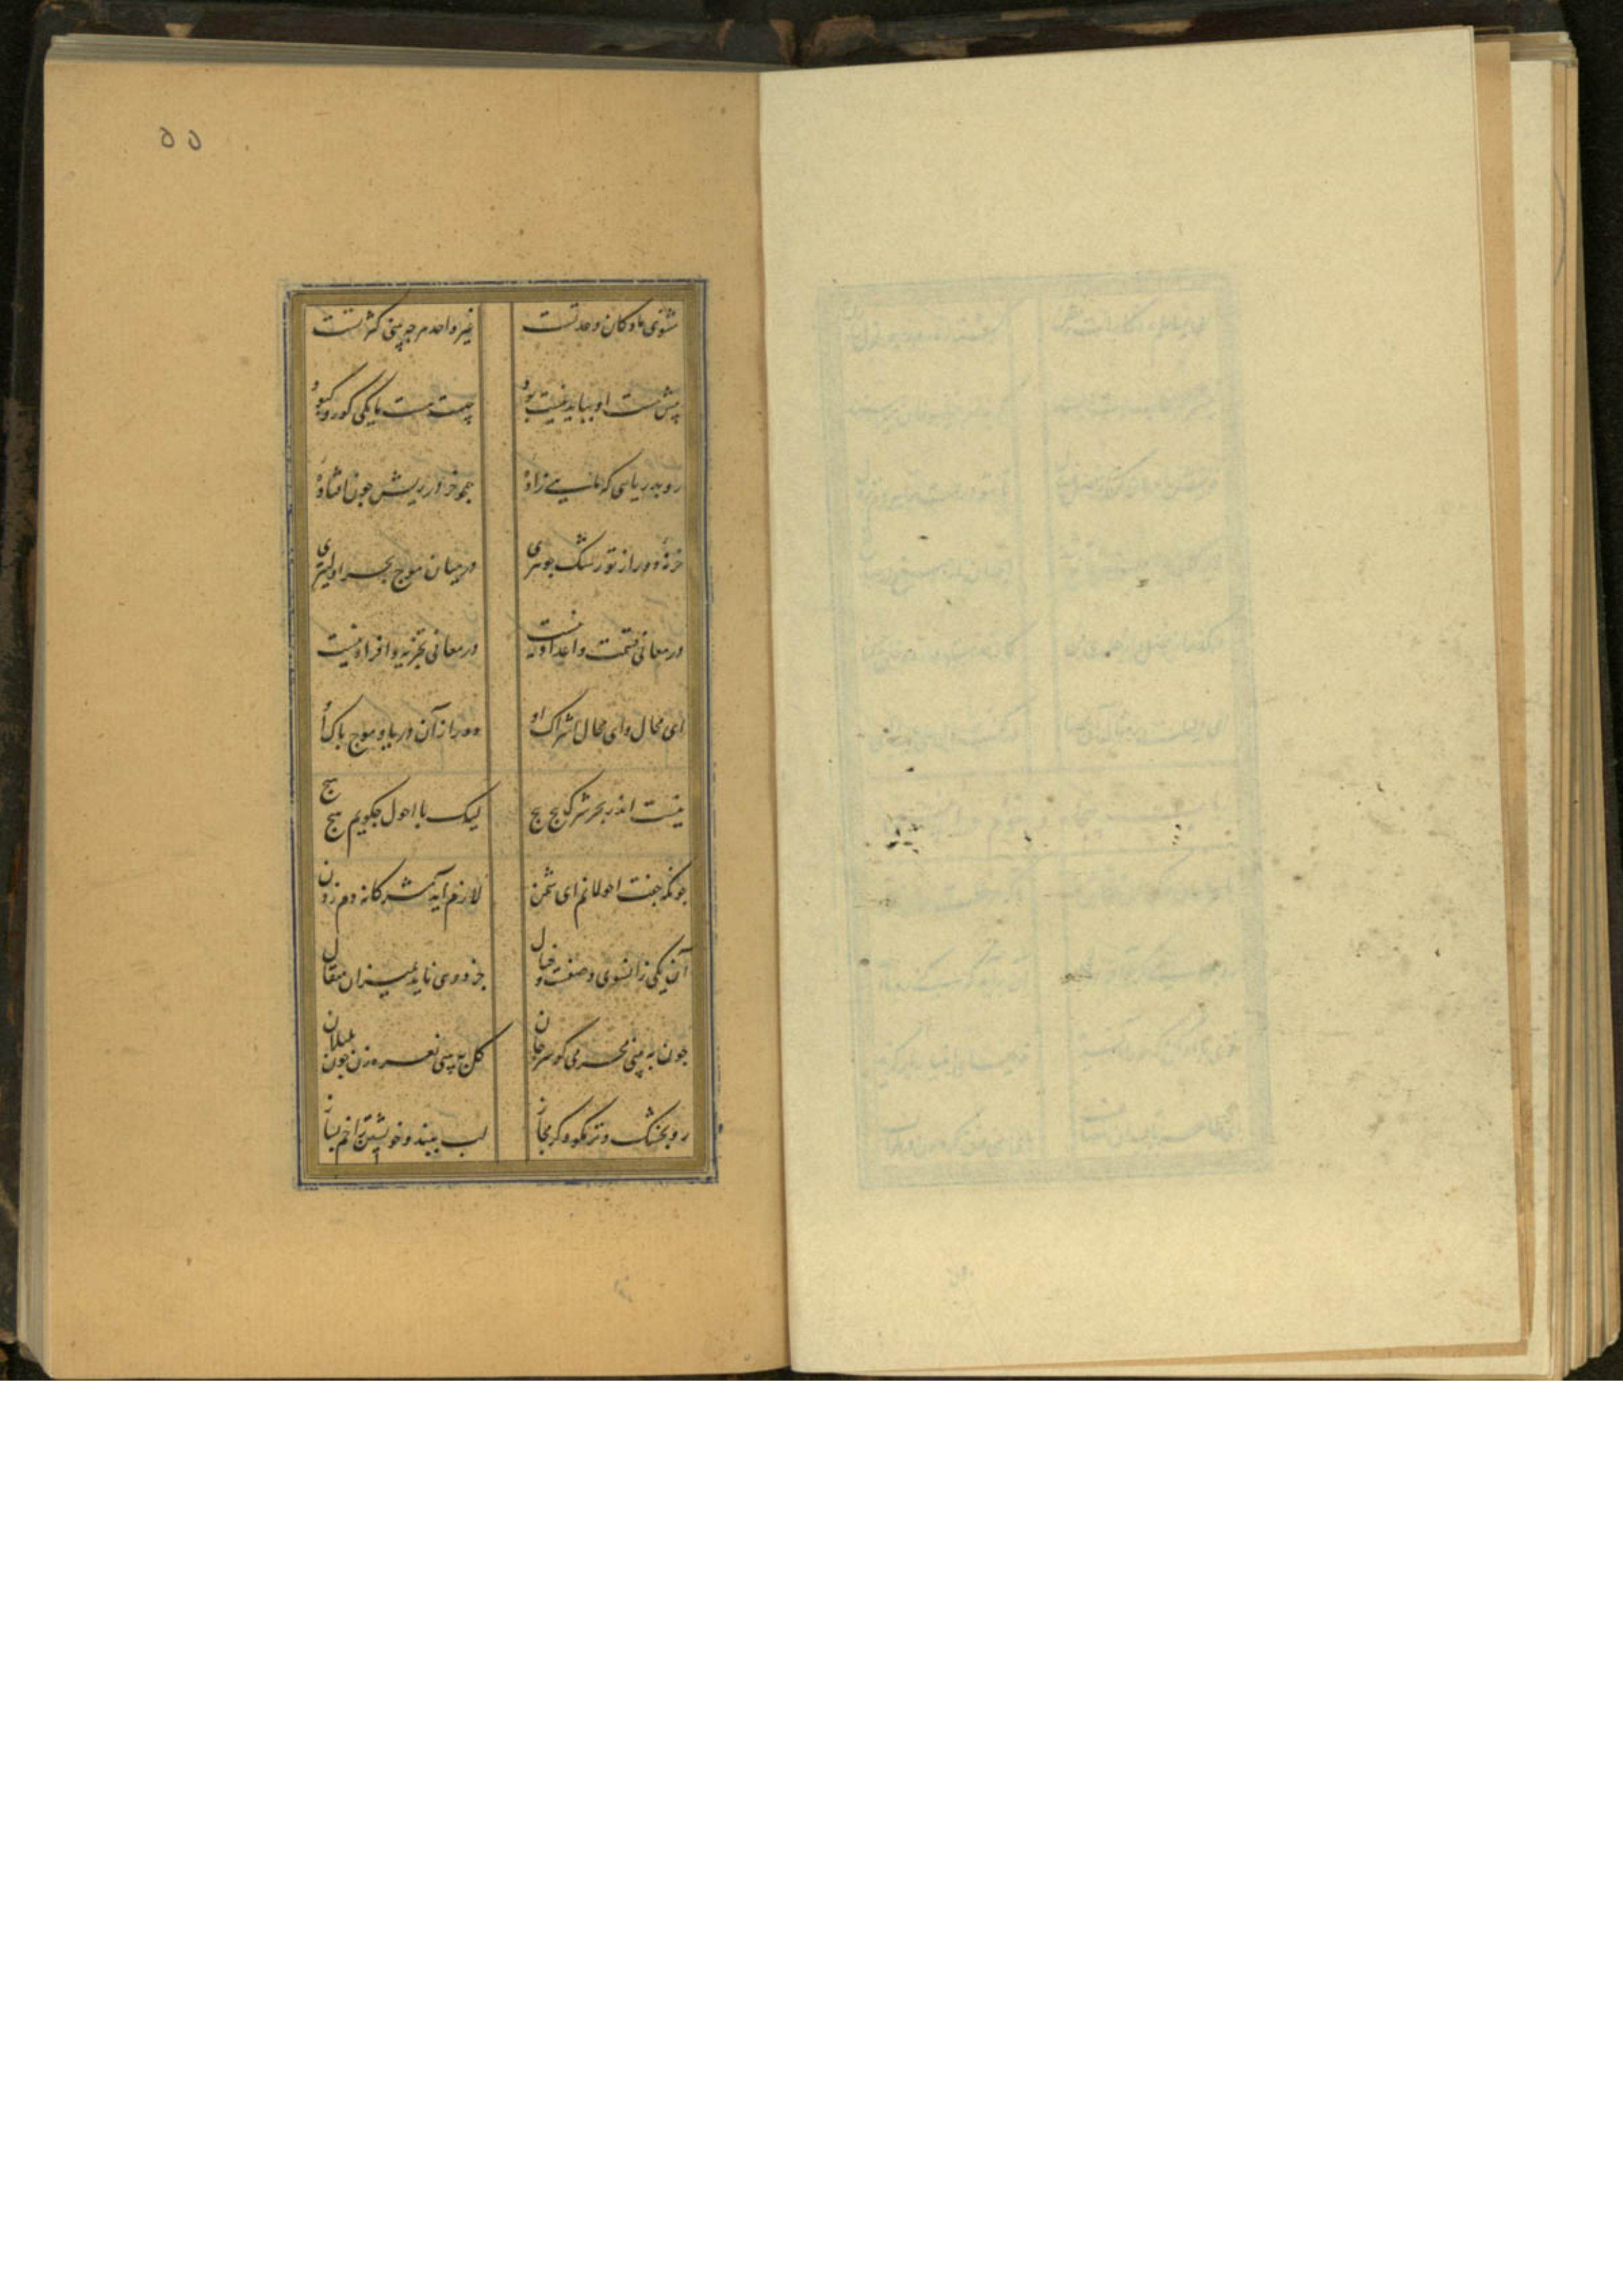 ۵۵
مثنوی ما دکان وحدتست غیر واحد هرچه بینی کثرتست
پیش هست او بباید نیست بود چیست هست یکی کور و کبود
رو بدریایی که ماهی زادهٔ همچو در ریش چون افتادهٔ
نهٔ دور از تو رشک جوهری در میان موج بحر اولیتری
در معانی قسمت و اعداد نیست در معانی تجزیه و افراد نیست
ای محال و ای محال اشراک او دور از آن دریا و موج پاک او
نیست اندر بحر شرک پیچ پیچ لیک با احول چکویم هیچ هیچ
چونکه جفت احولانیم ای شمن لازم آید مشرکانه دم زدن
آن یکی زانسوی وصفست و خیال جز دوی ناید بمیزان مقال
چون به بینی محرمی کو سر جان کل به بینی نعره زن چون بلبلان
رو بخشک و تر لب ببند و خویشتن را خم بساز